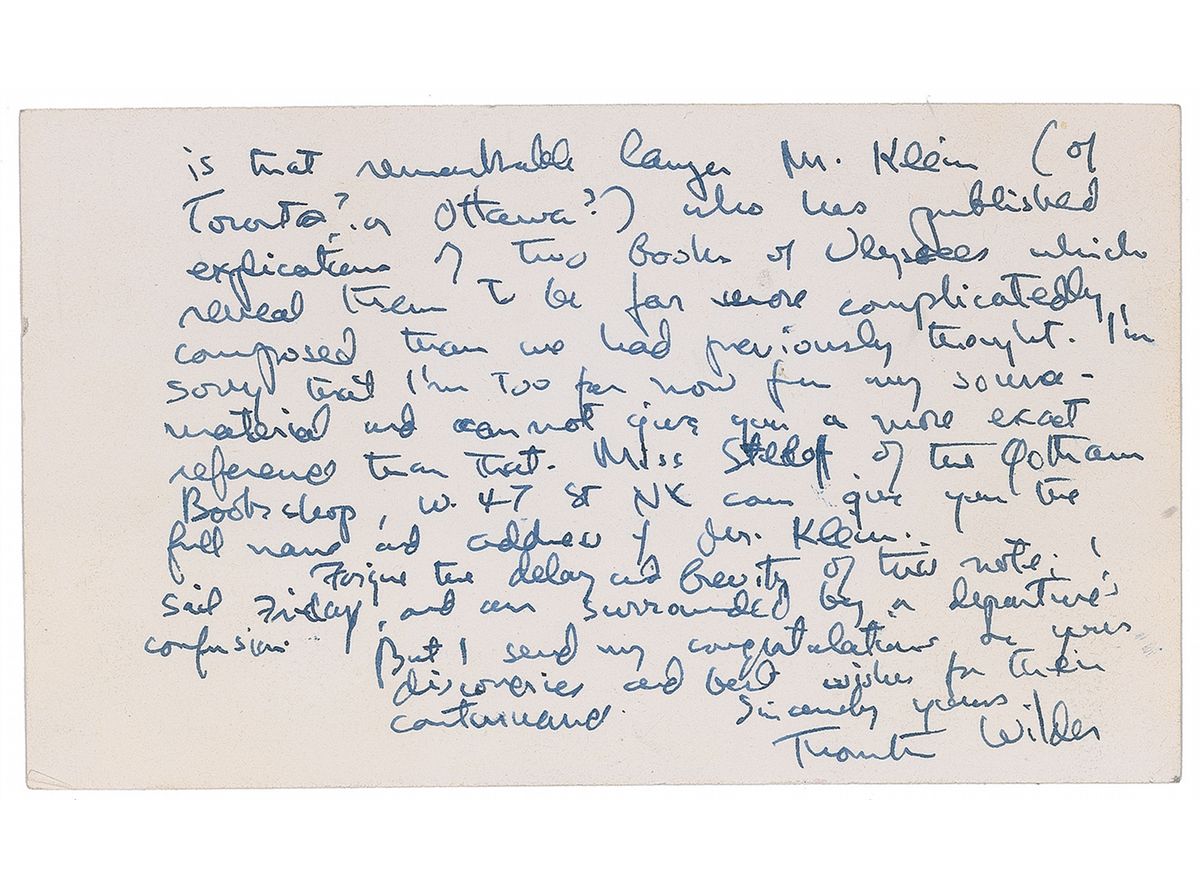 is that remarkable lawyer Mr. Klein (of
Toronto? or Ottawa?) who has published
explications of two books of Ulysses which
reveal them to be far more complicatedly
composed than we had previously thought. I'm
sorry that I'm too far now from my source-
material and cannot give you a more exact
reference than that. Miss Steloff of the Gotham
Bookshop, W. 47 St NY can give you the
full name and address of Mr. Klein.
Forgive the delay and brevity of this note; I
sail Friday and am surrounded by a departure's
confusion. But I send my congratulations on your
discoveries and best wishes for their
continuance.
Sincerely yours
Thornton Wilder